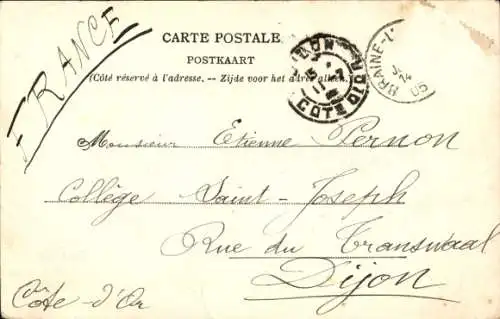 FRANCE
CARTE POSTALE
POSTKAART
(Côté réservé à l'adresse. — Zijde voor het adres alleen.)
DIJON
COTE D'OR
BRAINE-L'
14
05
Monsieur Etienne Pernon
Collège Saint-Joseph
Rue du Transwaal
Dijon
Côte-d'Or